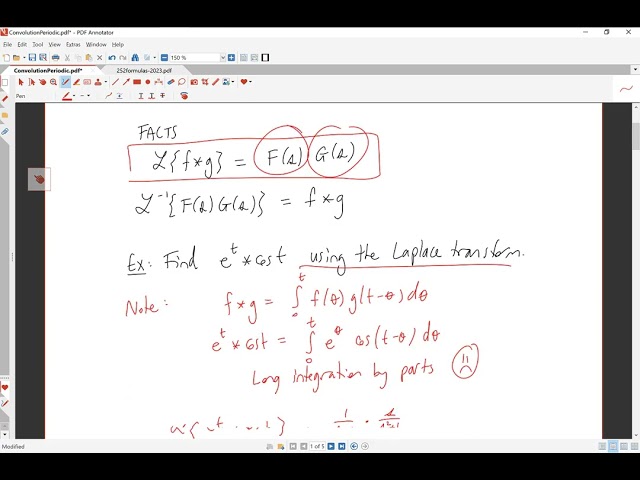 ConvolutionPeriodic.pdf* - PDF Annotator
File Edit View Insert Tool Extras Window Help
150 %
ConvolutionPeriodic.pdf* 252formulas-2023.pdf
Pen
FACTS
ℒ{f*g} = F(s) G(s)
ℒ⁻¹{F(s)G(s)} = f*g
Ex: Find eᵗ * cos t using the Laplace transform.
Note: f*g = ∫₀ᵗ f(θ) g(t-θ) dθ
eᵗ * cos t = ∫₀ᵗ e^θ cos(t-θ) dθ
Long integration by parts
Modified 1 of 5